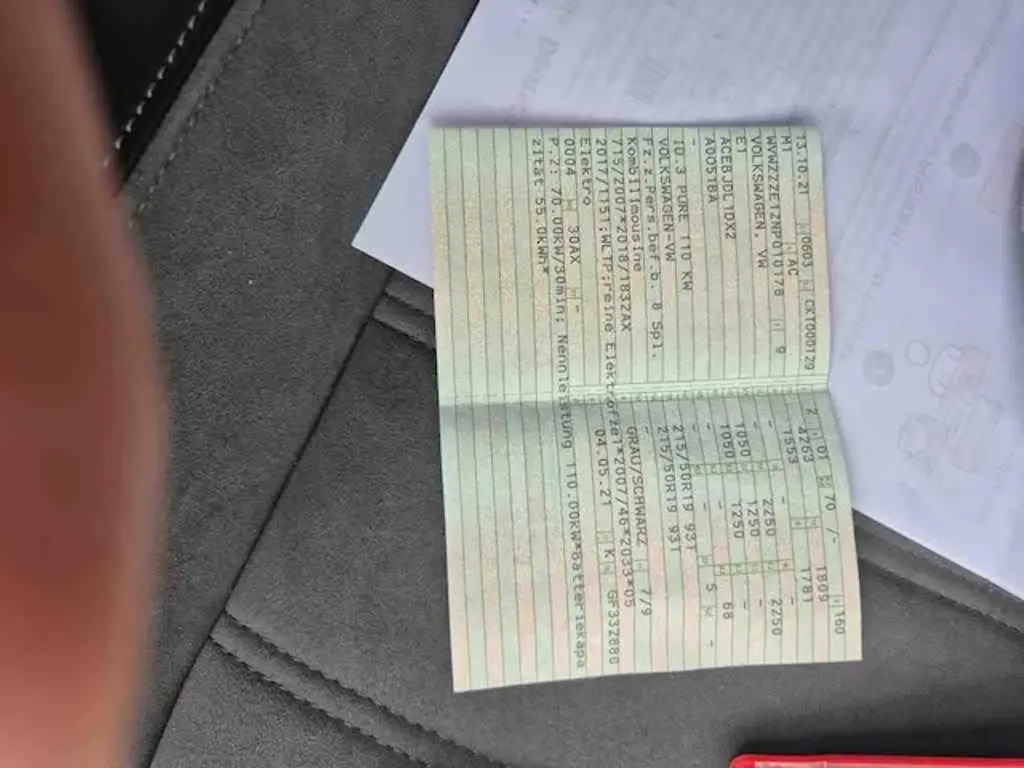 13.10.21 0603 CKT000129
M1 AC
WVWZZZE1ZNP010178 9
VOLKSWAGEN, VW
E1
ACEBJDL1DX2
AD051BA
-
ID.3 PURE 110 KW
VOLKSWAGEN-VW
Fz.z.Pers.bef.b. 8 Spl.
Kombilimousine
715/2007*2018/1832AX
2017/1151;WLTP;reine Elektrofzel*2007/46*2033*05
Elektro 04.05.21 K GF332880
0004 30AX -
P.2: 70.00KW/30min: Nennleistung 110.00KW*Batteriekapa
zität 55.0KWh*
2 01 70 /- 160
4263 1809
1553 - 1781
- 2250 2250
- 1250 -
1050 1250 -
1050 - 68
- 5 -
215/50R19 93T
215/50R19 93T
-
GRAU/SCHWARZ 7/9